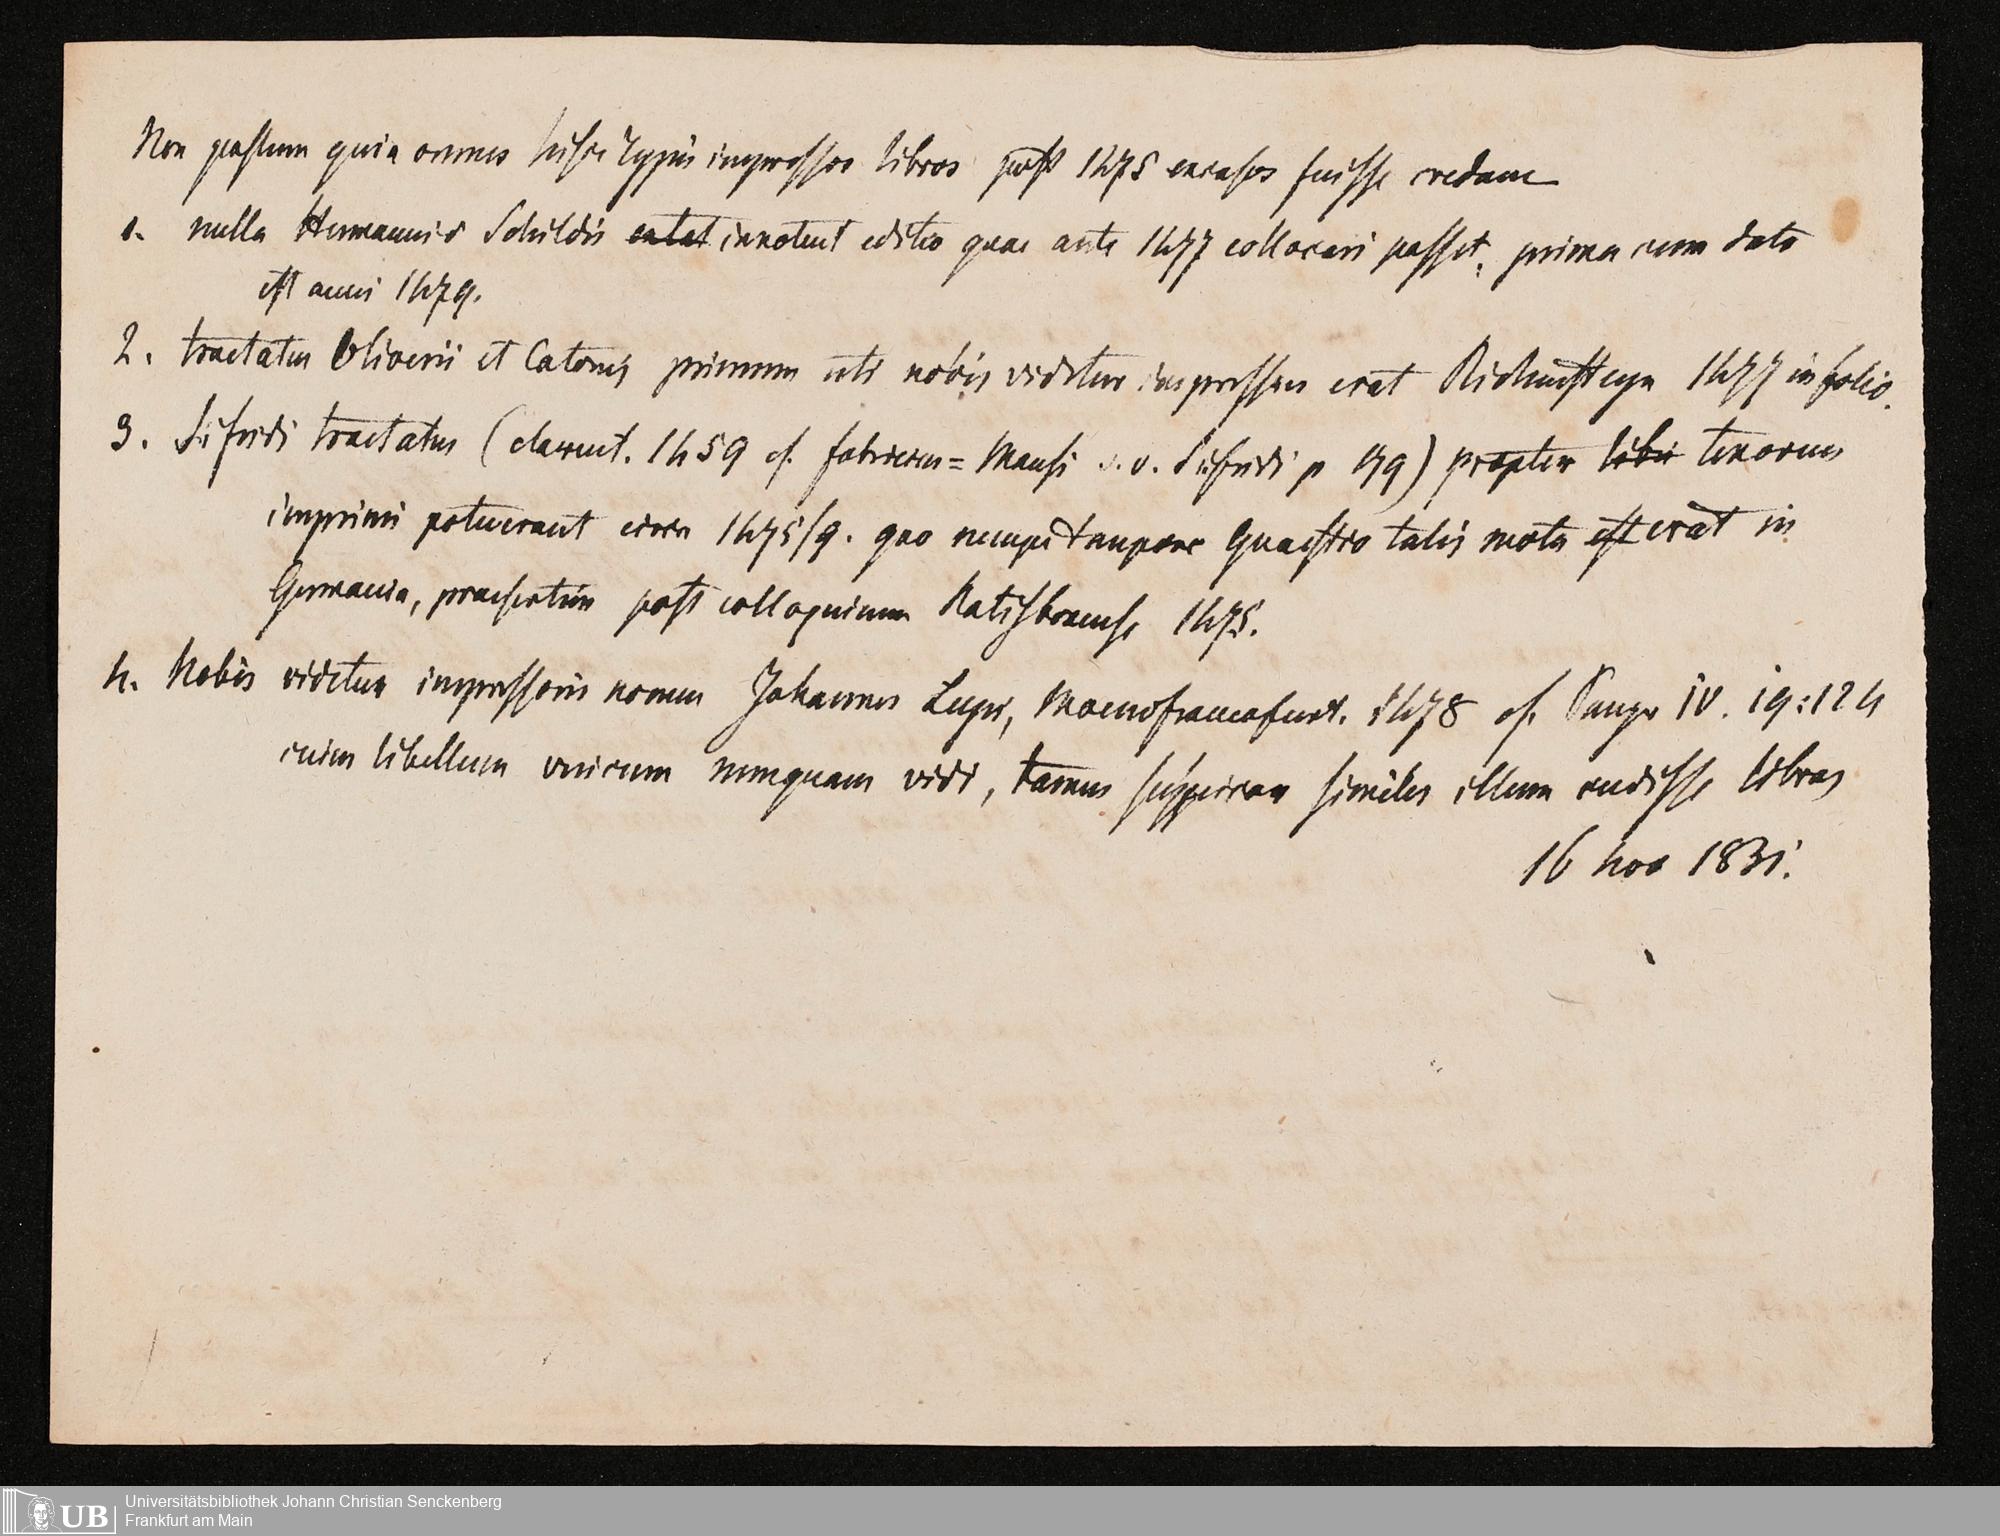 Non possum quin omnes hisce typis impressos libros post 1475 excusos fuisse credam
1. nulla Hermanni d Schildis extat innotuit editio quae ante 1477 collocari posset, prima cum dato
est anni 1479.
2. tractatus Oliverii et Catonis primum uti nobis videtur impressus erat 1477 in folio.
3. Sifridi tractatus (claruit. 1459 cf. Fabricius = Mansi s. v. Sifridi p 179) propter libri tenorem
imprimi potuerant circa 1475/9. quo nempe tempore Quaestio talis mota est erat in
Germania, praesertim post colloquium Ratisbonense 1475.
4. Nobis videtur impressoris nomen Johannes Lupi, Moenofrancofurt. 1478 cf. Panzer IV. 19:124
cuius libellum unicum nunquam vidi, tamen suspicor similes illum edidisse libros
16 nov 1831.
Universitätsbibliothek Johann Christian Senckenberg
Frankfurt am Main
UB